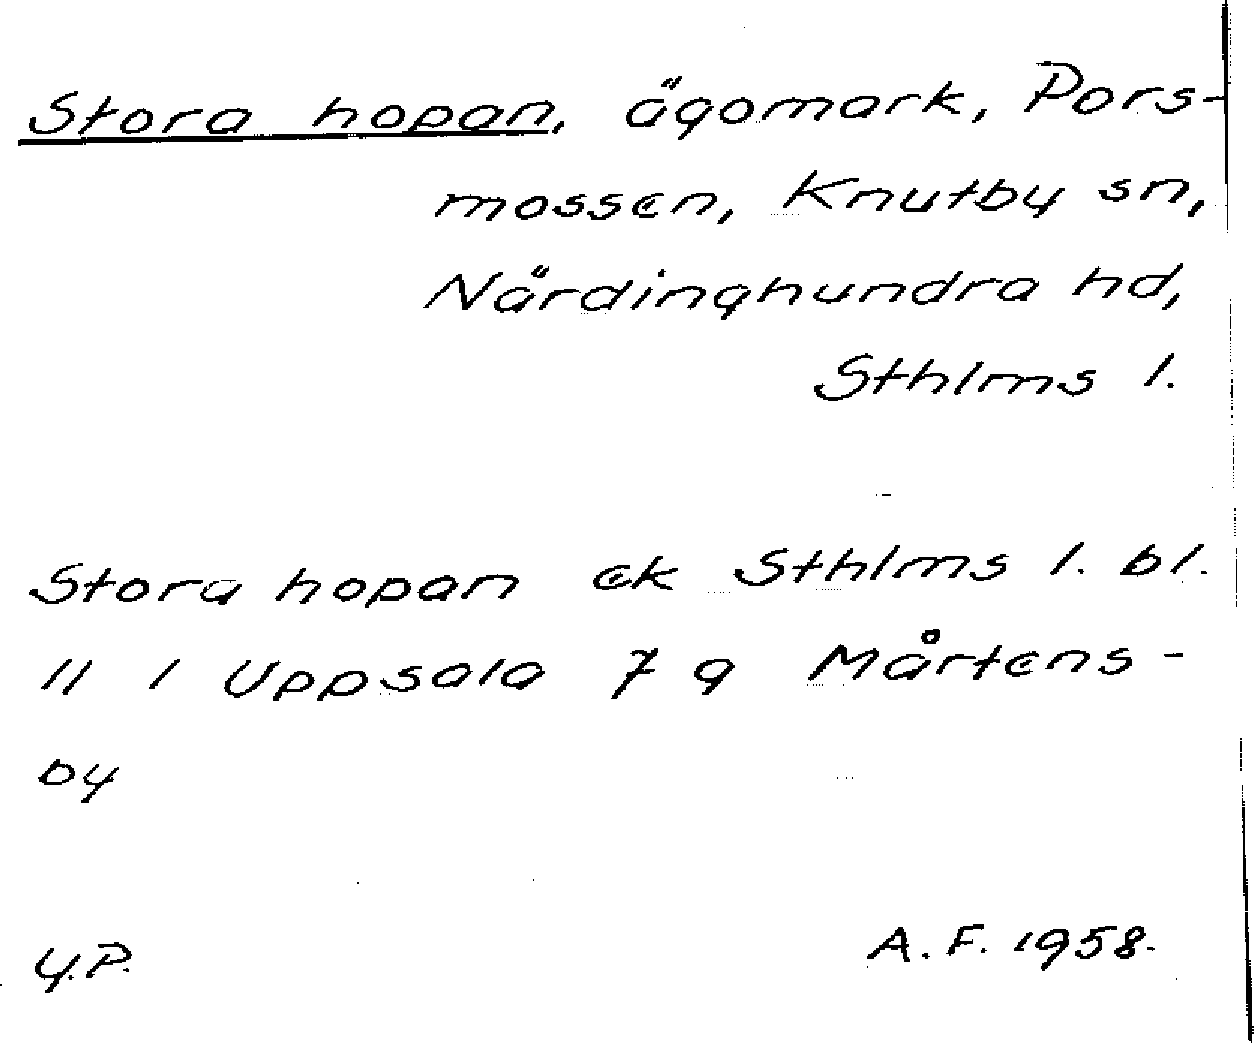 Stora hopan, ägomark, Pors-
mossen, Knutby sn,
Närdinghundra hd,
Sthlms l.
Stora hopan ek Sthlms l. bl.
11 / Uppsala 7 g Mårtens-
by
Y.P. A.F. 1958.